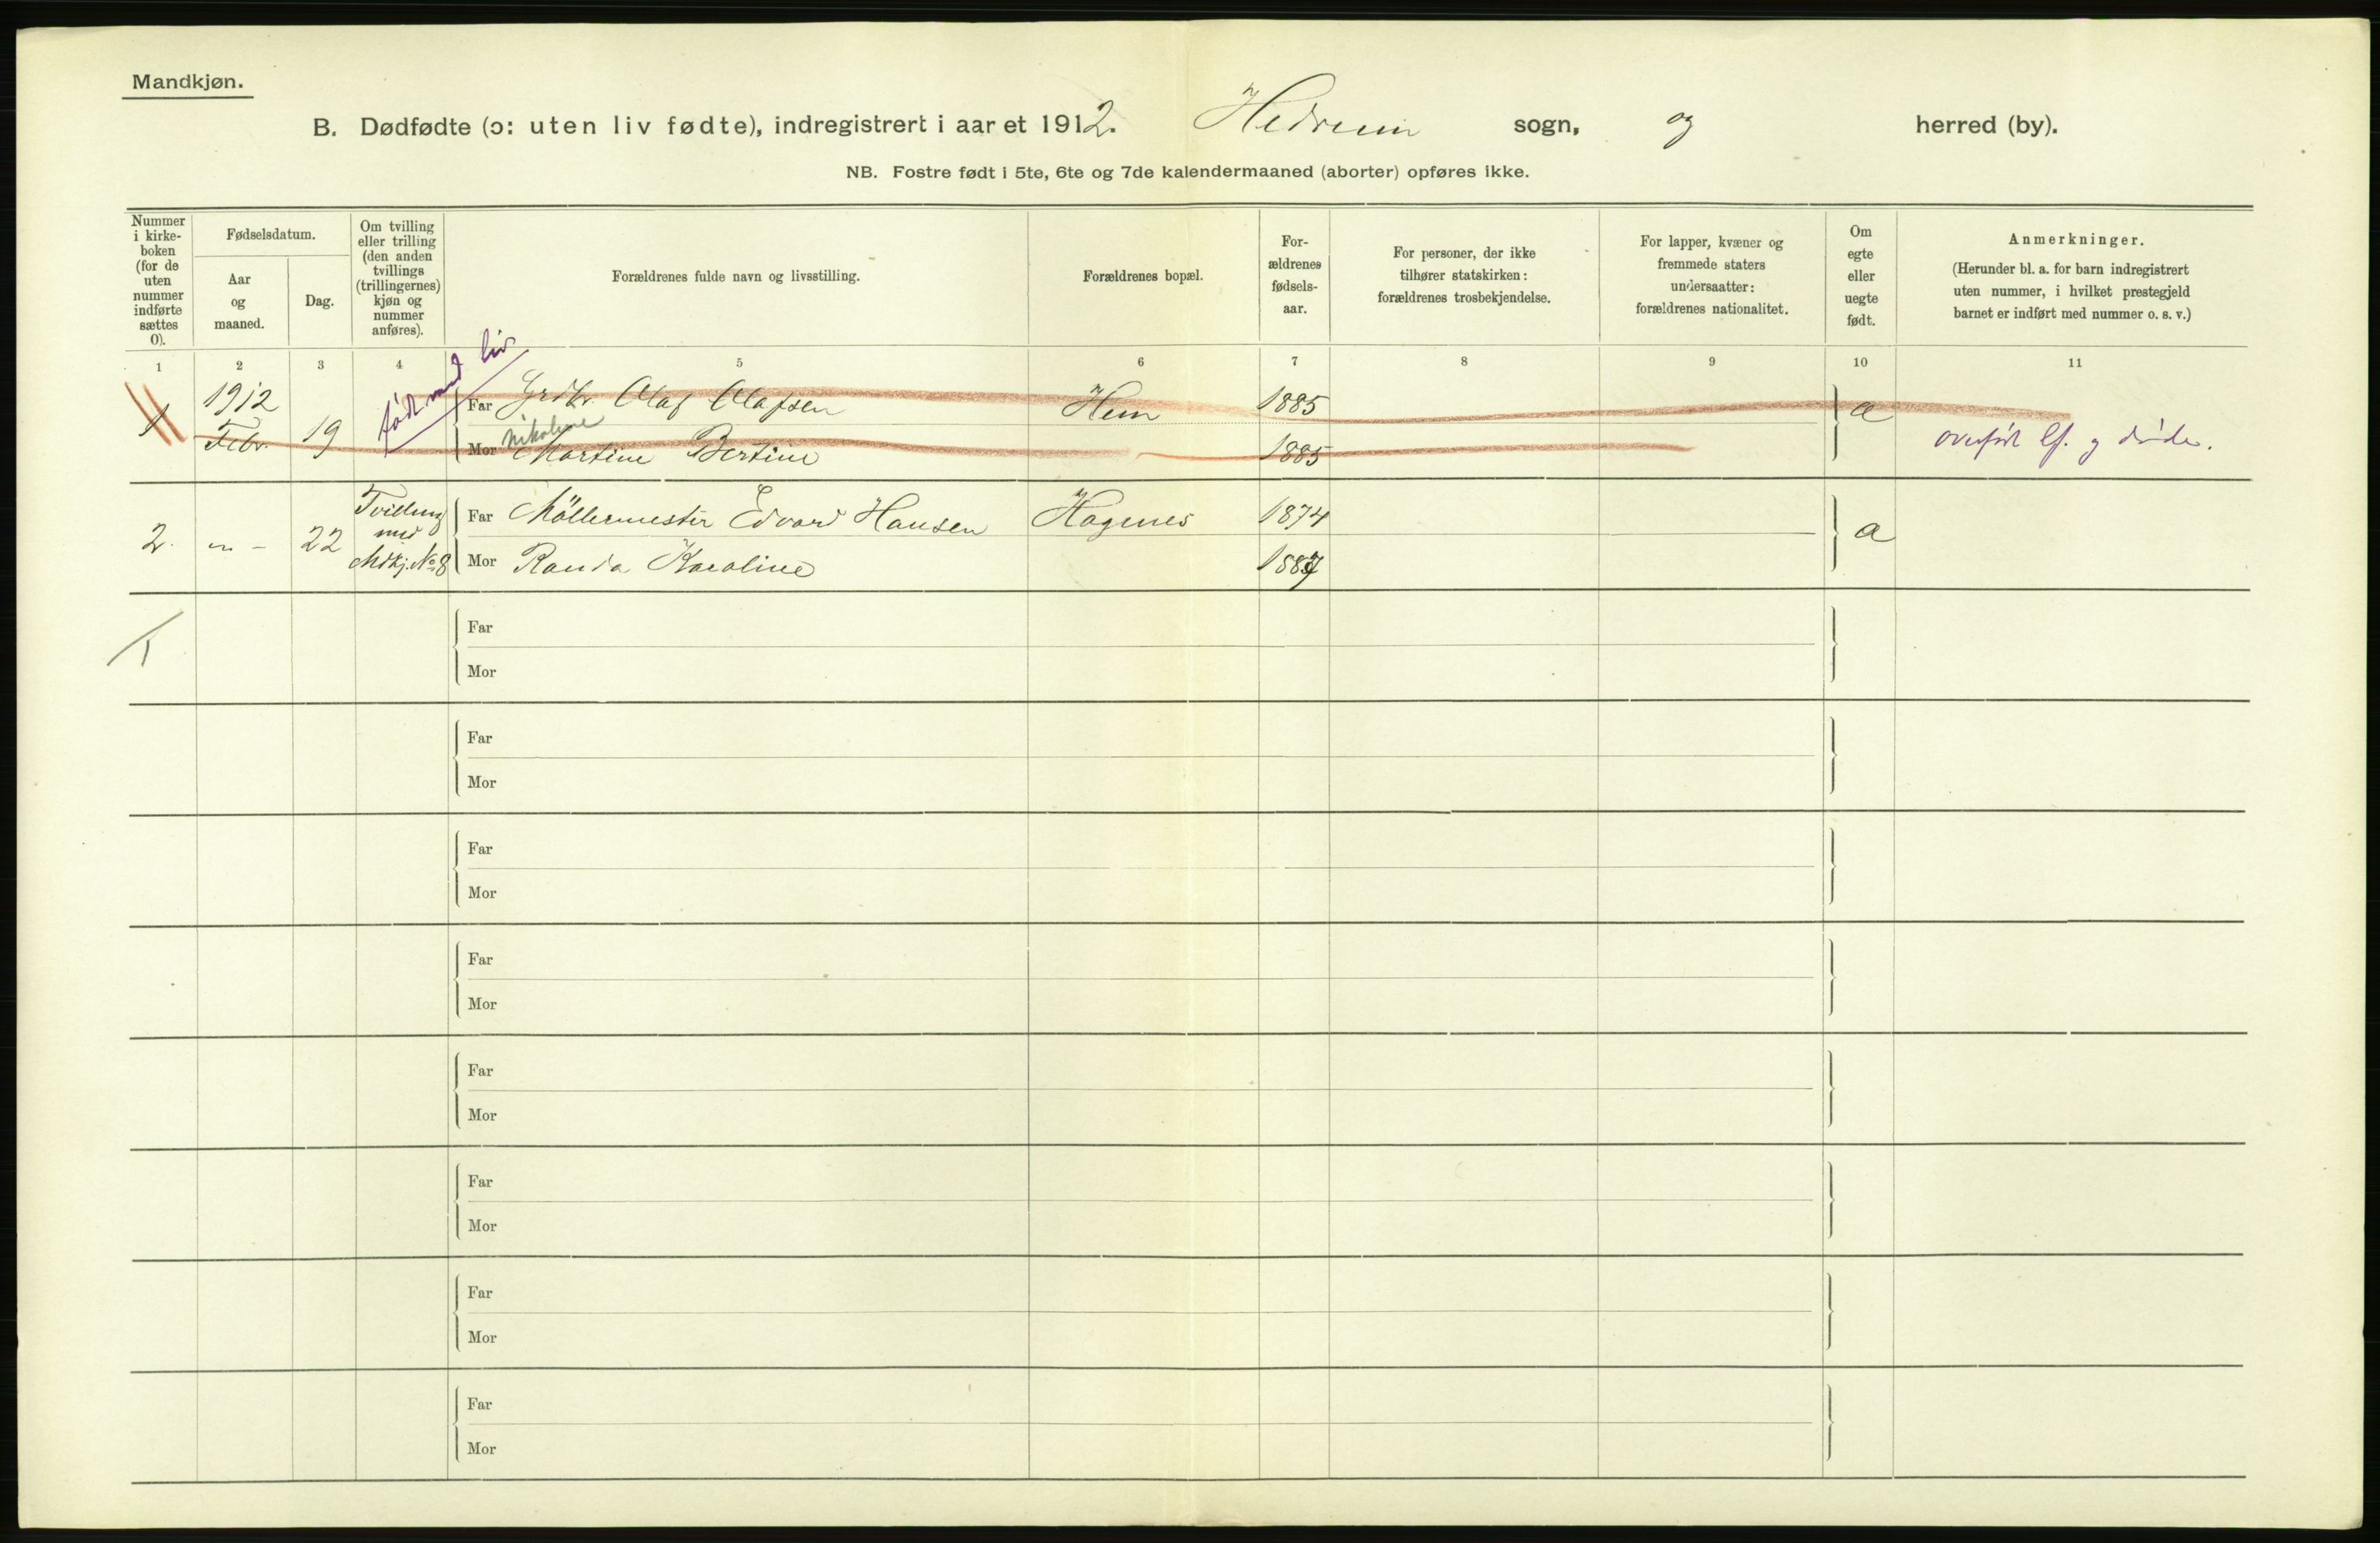 Mandkjøn.
B. Dødfødte (ɔ: uten liv fødte), indregistrert i aaret 1912. Hedrum sogn, og herred (by).
NB. Fostre født i 5te, 6te og 7de kalendermaaned (aborter) opføres ikke.
Nummer
i kirke-
boken
(for de
uten
nummer
indførte
sættes
0).
Fødselsdatum.
Aar
og
maaned.
Dag.
Om tvilling
eller trilling
(den anden
tvillings
(trillingernes)
kjøn og
nummer
anføres).
Forældrenes fulde navn og livsstilling.
Forældrenes bopæl.
For-
ældrenes
fødsels-
aar.
For personer, der ikke
tilhører statskirken:
forældrenes trosbekjendelse.
For lapper, kvæner og
fremmede staters
undersaatter:
forældrenes nationalitet.
Om
egte
eller
uegte
født.
Anmerkninger.
(Herunder bl. a. for barn indregistrert
uten nummer, i hvilket prestegjeld
barnet er indført med nummer o. s. v.)
1 2 3 4 5 6 7 8 9 10 11
født med liv
1 1912 Febr. 19
Far Grdbr. Olaf Olafsen Hem 1885 a
Nikoline
Mor Martine Bertine 1885
overført lf. og døde.
2. " - 22
Tvilling
med
Mdkj. No 8
Far Möllermester Edvard Hansen Hagnes 1874 a
Mor Randa Karoline 1887
Far
Mor
Far
Mor
Far
Mor
Far
Mor
Far
Mor
Far
Mor
Far
Mor
Far
Mor